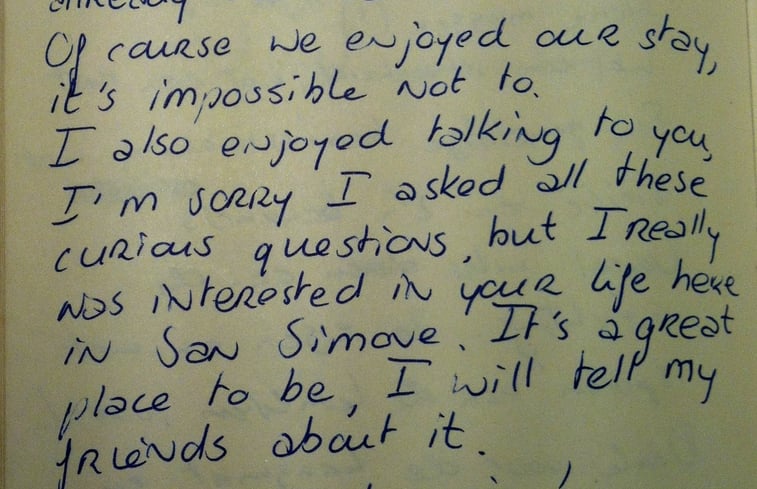 already
Of course we enjoyed our stay,
it's impossible not to.
I also enjoyed talking to you,
I'm sorry I asked all these
curious questions, but I really
was interested in your life here
in San Simone. It's a great
place to be, I will tell my
friends about it.